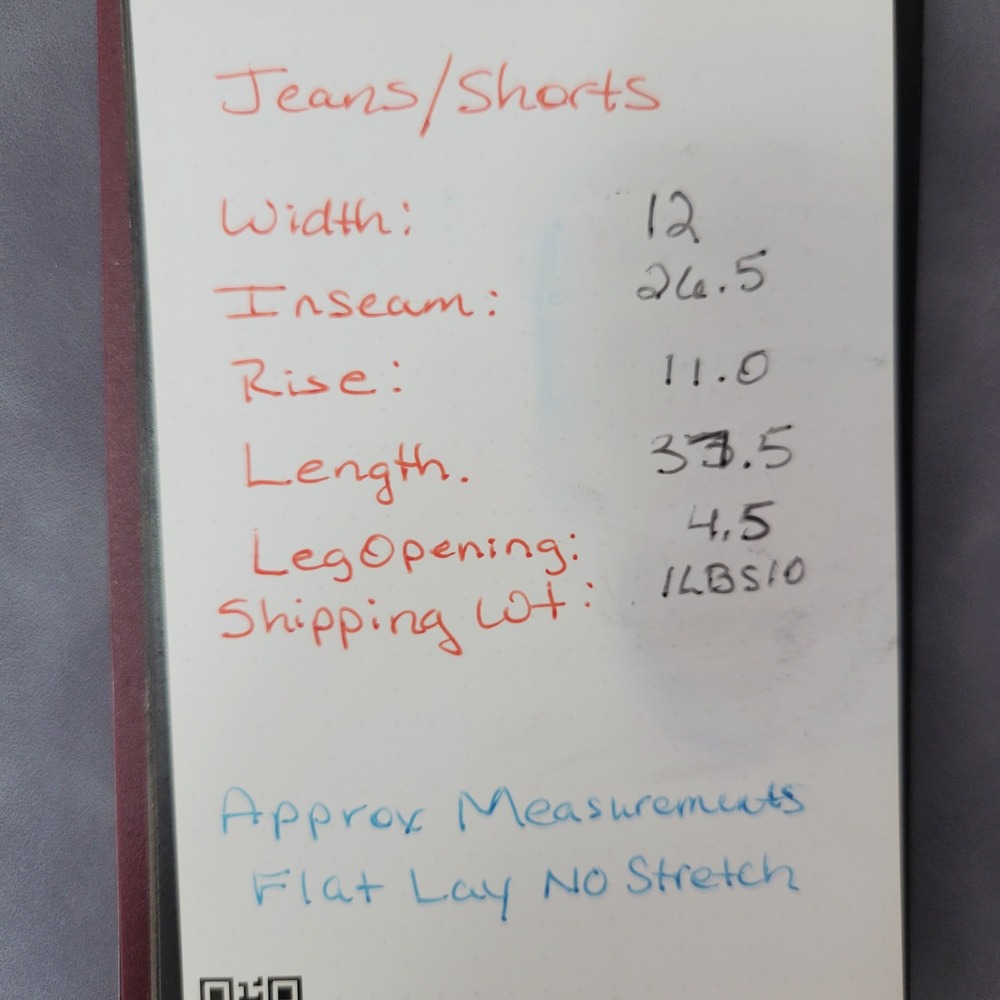 Jeans/Shorts
Width: 12
Inseam: 26.5
Rise: 11.0
Length.
Leg Opening: 4.5
Shipping Wt: 1LBS10
Approx Measurements
Flat Lay No Stretch